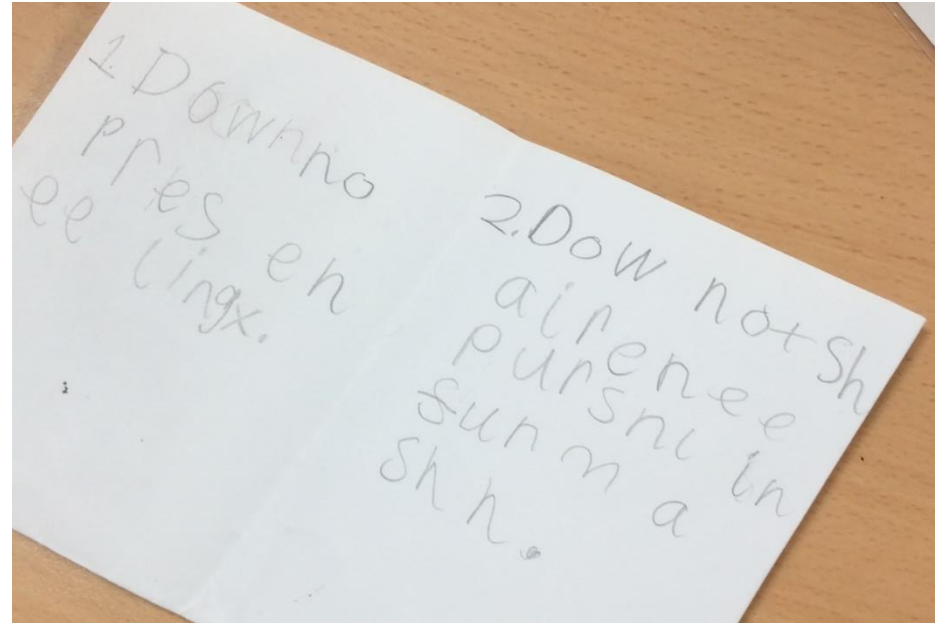 1. Downno
pres en
ee lingx.
2. Dow not Sh
airenee
pursni in
sun m a
shh.